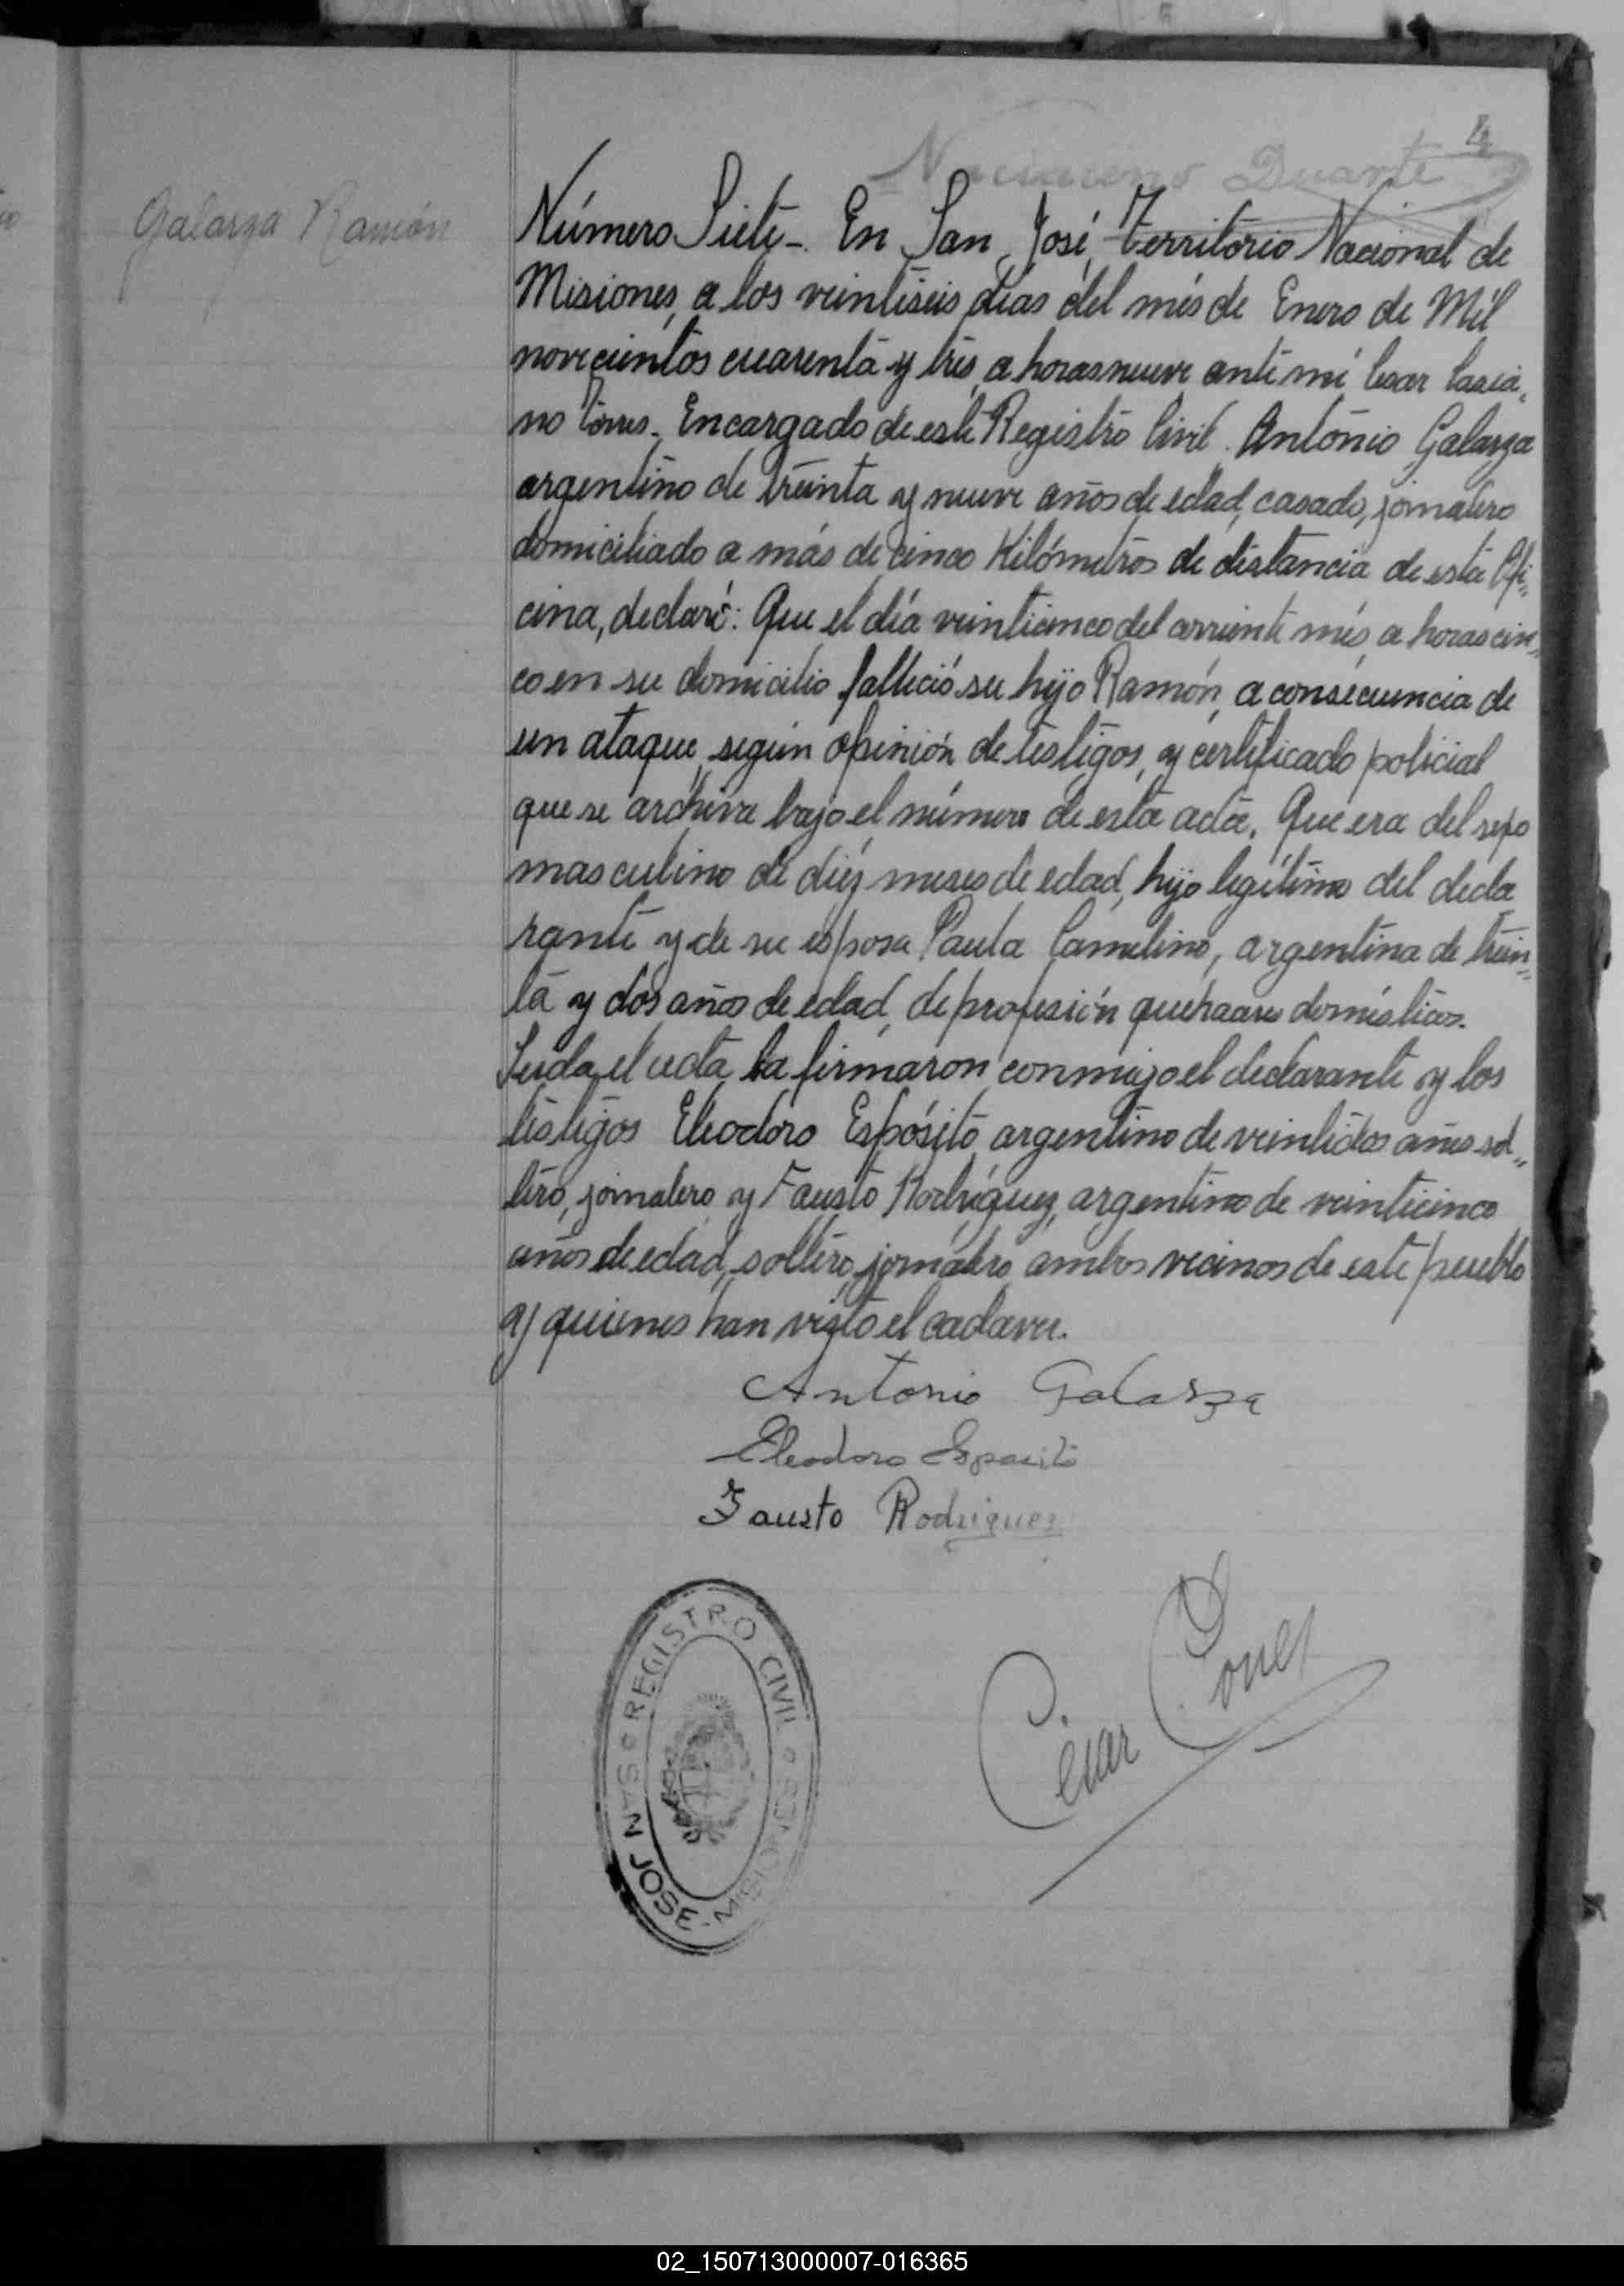 4
Duarte
Galarza Ramón
Número Siete-. En San José, Territorio Nacional de
Misiones, a los veintiseis días del més de Enero de Mil
novecientos cuarenta y tres, a horas nueve ante mi Cesar
no Torres. Encargado de este Registro Civil. Antonio Galarza
argentino de treinta y nueve años de edad, casado, jornalero
domiciliado a más de cinco Kilómetros de distancia de esta Ofi„
cina, declaró: Que el día veinticinco del corriente més, a horas cin„
co en su domicilio falleció su hijo Ramón, a consecuencia de
un ataque, según opinión de testigos, y certificado policial
que se archiva bajo el número de esta acta. Que era del sexo
masculino de diéz meses de edad, hijo legítimo del decla
rante y de su esposa Paula Camelino, argentina de trein„
ta y dos años de edad, de profesión quehaceres domésticos.
Leida el acta la firmaron conmigo el declarante y los
testigos Eleodoro Espósito argentino de veintidos años sol„
tero, jornalero y Fausto Rodríguez, argentino de veinticinco
años de edad, soltero, jornalero ambos vecinos de este pueblo
y quienes han visto el cadaver.
Antonio Galarza
Eleodoro Esposito
Fausto Rodriguez
REGISTRO CIVIL
SAN JOSE - MISIONES
César Torres
02_150713000007-016365